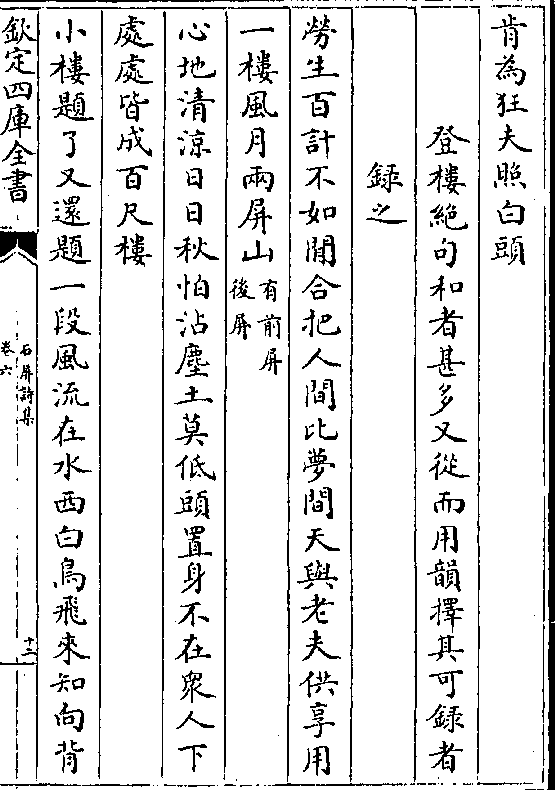 肯為狂夫照白頭
登樓絶句和者甚多又從而用韻擇其可録者
録之
勞生百計不如閒合把人間比夢間天與老夫供享用
一樓風月兩屏山有前屏
後屏
心地清涼日日秋怕沾塵土莫低頭置身不在衆人下
處處皆成百尺樓
小樓題了又還題一段風流在水西白鳥飛來知向背
欽定四庫全書
石屏詩集
卷六
十二